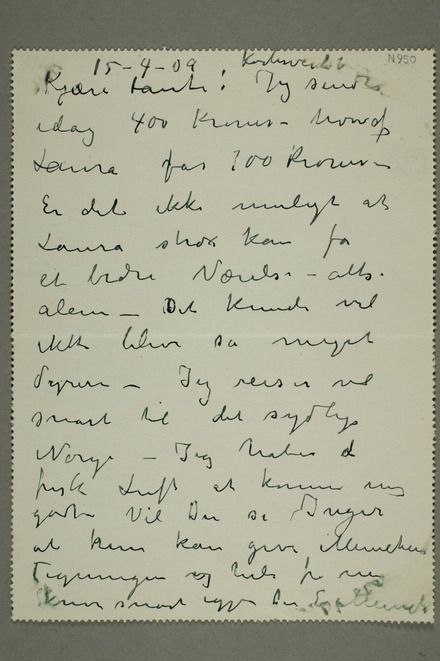 N950
15-4-09 Kochsvei
Kjære tante! Jeg sender
idag 400 Kroner – hvoraf
Laura får 100 Kroner –
Er det ikke muligt at
Laura strax kan få
et bedre Værelse – alts.
alene – Det kunde vel
ikke blive så meget
dyrere – Jeg reiser vel
snart til det sydlige
Norge – Jeg haber d
frisk Luft at komme mig
godt Vil Du se Inger
at hun kan give
Tegninger og hils fra mig
snart igjen Din